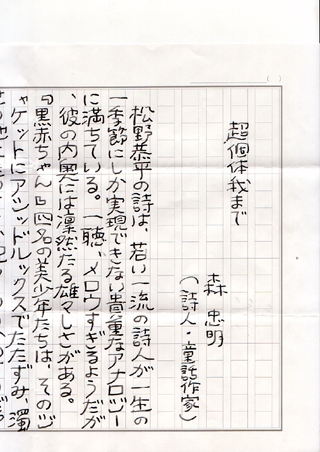 超個体我まで
森 忠明
(詩人・童話作家)
松野恭平の詩は、若い一流の詩人が一生の
一季節にしか実現できない貴重なアナロジー
に満ちている。一聴、メロウすぎるようだが
、彼の内奥には凛然たる雄々しさがある。
『黒赤ちゃん』四名の美少年たちは、そのジ
ャケットにアシッドルックスでたたずみ、濁